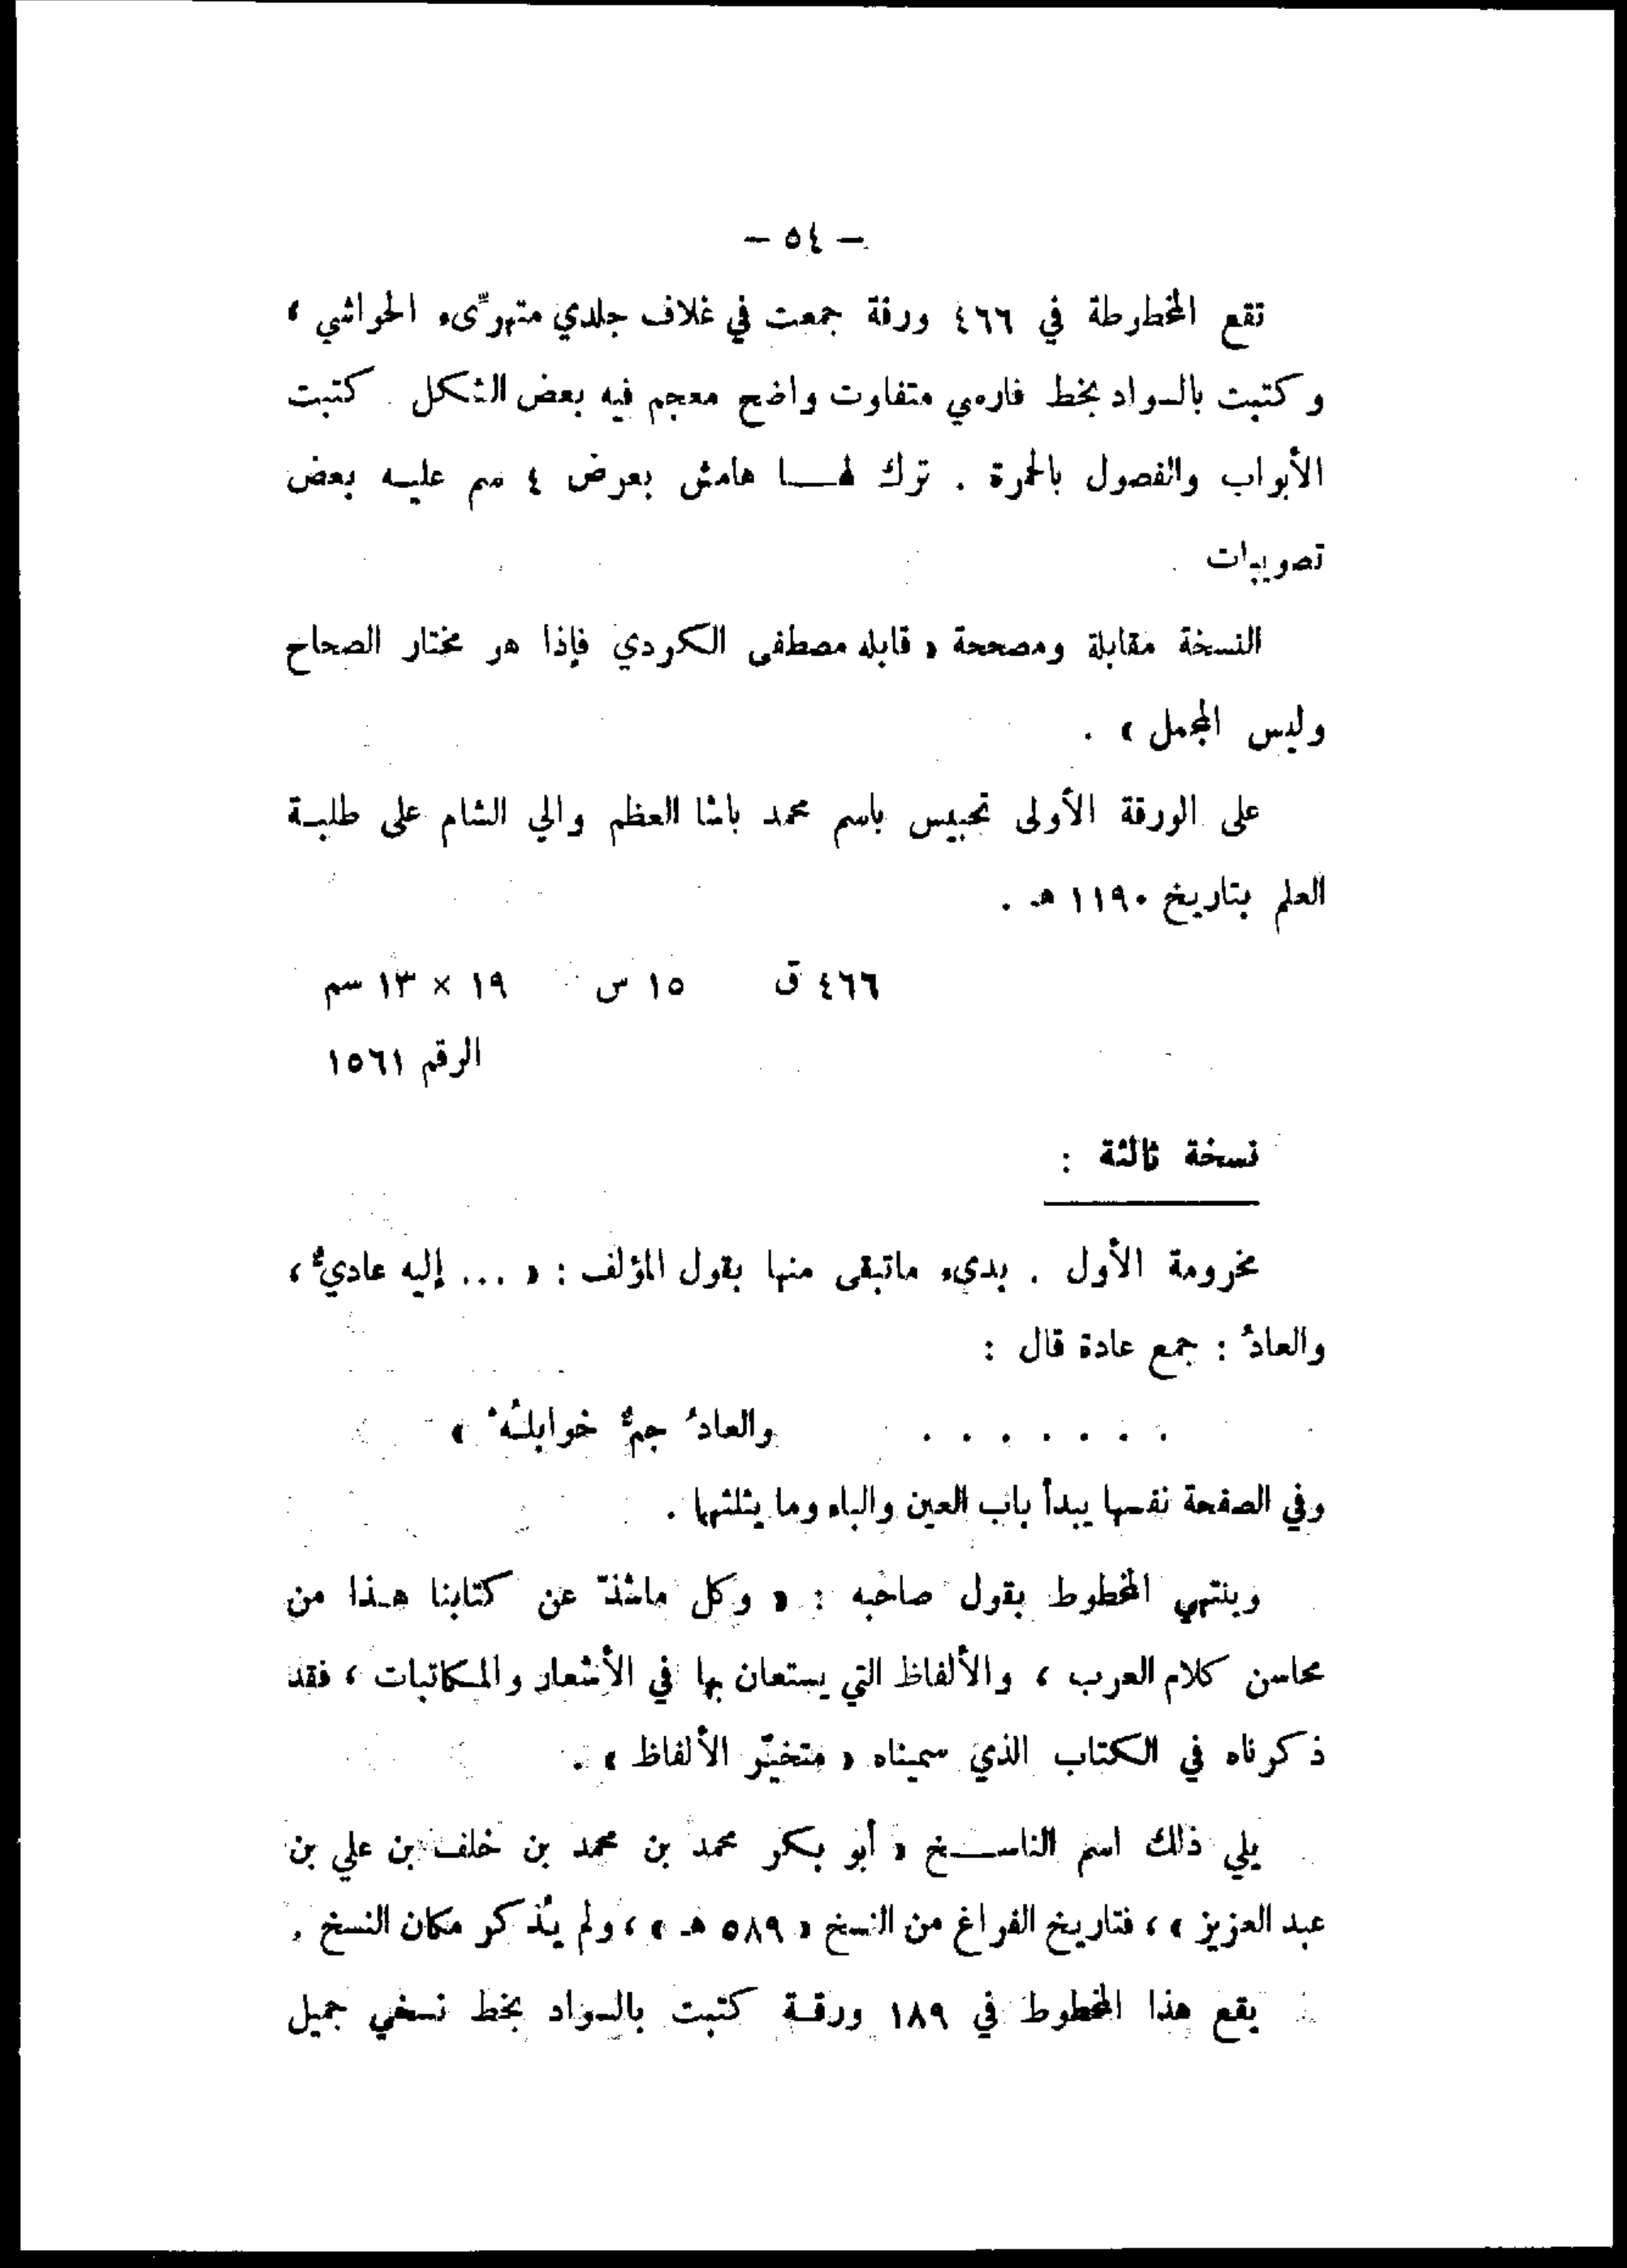 — ٥٤ —
تقع المخطوطة في ٤٦٦ ورقة جمعت في غلاف جلدي متهرّىء الحواشي ،
وكتبت بالسواد بخط فارسي متفاوت واضح معجم فيه بعض الشكل . كتبت
الأبواب والفصول بالحمرة . ترك لهـا هامش بعرض ٤ سم عليه بعض
تصويبات .
النسخة مقابلة ومصححة « قابله مصطفى الكردي فإذا هو مختار الصحاح
وليس المجمل » .
على الورقة الأولى تحبيس باسم محمد باشا العظم والي الشام على طلبة
العلم بتاريخ ١١٩٠ هـ .
٤٦٦ ق ١٥ س ١٩ × ١٣ سم
الرقم ١٥٦١
نسخة ثالثة :
مخرومة الأول . بدىء ماتبقى منها بقول المؤلف : « ... إليه عاديٌ ،
والعادُ : جمع عادة قال :
. . . . . . . والعادُ جمٌ خوابلُهْ »
وفي الصفحة نفسها يبدأ باب العين والباء وما يثلثهما .
وينتهي المخطوط بقول صاحبه : « وكل ماشذّ عن كتابنا هـذا من
محاسن كلام العرب ، والألفاظ التي يستعان بها في الأشعار والمكاتبات ، فقد
ذكرناه في الكتاب الذي سميناه « متخيّر الألفاظ » .
يلي ذلك اسم الناسـخ « أبو بكر محمد بن محمد بن خلف بن علي بن
عبد العزيز » ، فتاريخ الفراغ من النسخ « ٥٨٩ هـ » ، ولم يُذكر مكان النسخ .
يقع هذا المخطوط في ١٨٩ ورقـة كتبت بالسواد بخط نسخي جميل